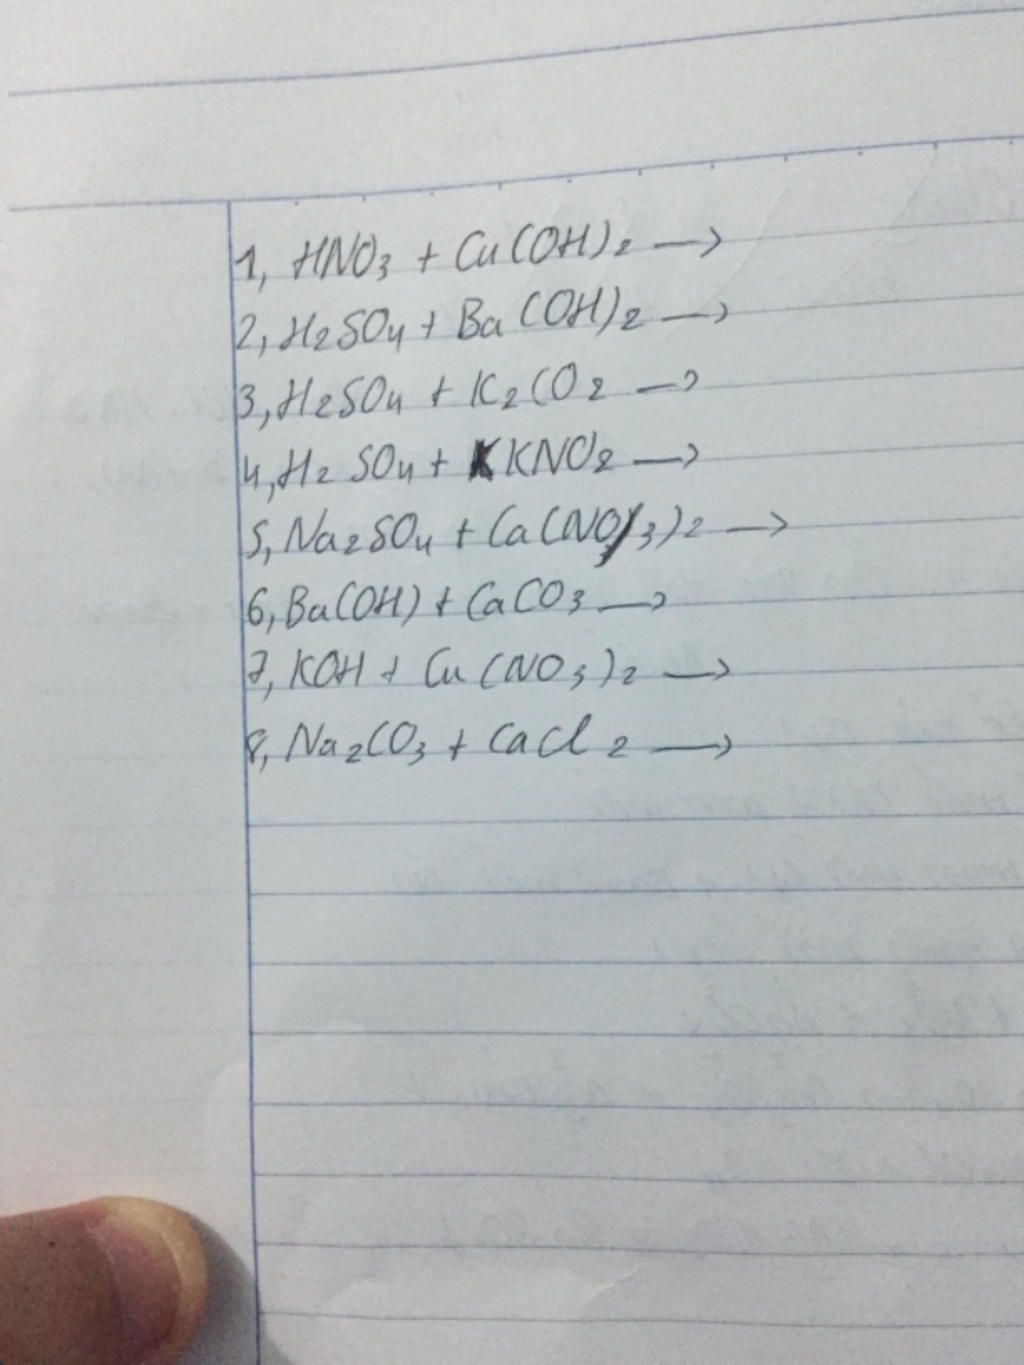 1, HNO3 + Cu(OH)2 →
2, H2SO4 + Ba(OH)2 →
3, H2SO4 + K2CO2 →
4, H2SO4 + KNO2 →
5, Na2SO4 + Ca(NO3)2 →
6, Ba(OH) + CaCO3 →
7, KOH + Cu(NO3)2 →
8, Na2CO3 + CaCl2 →